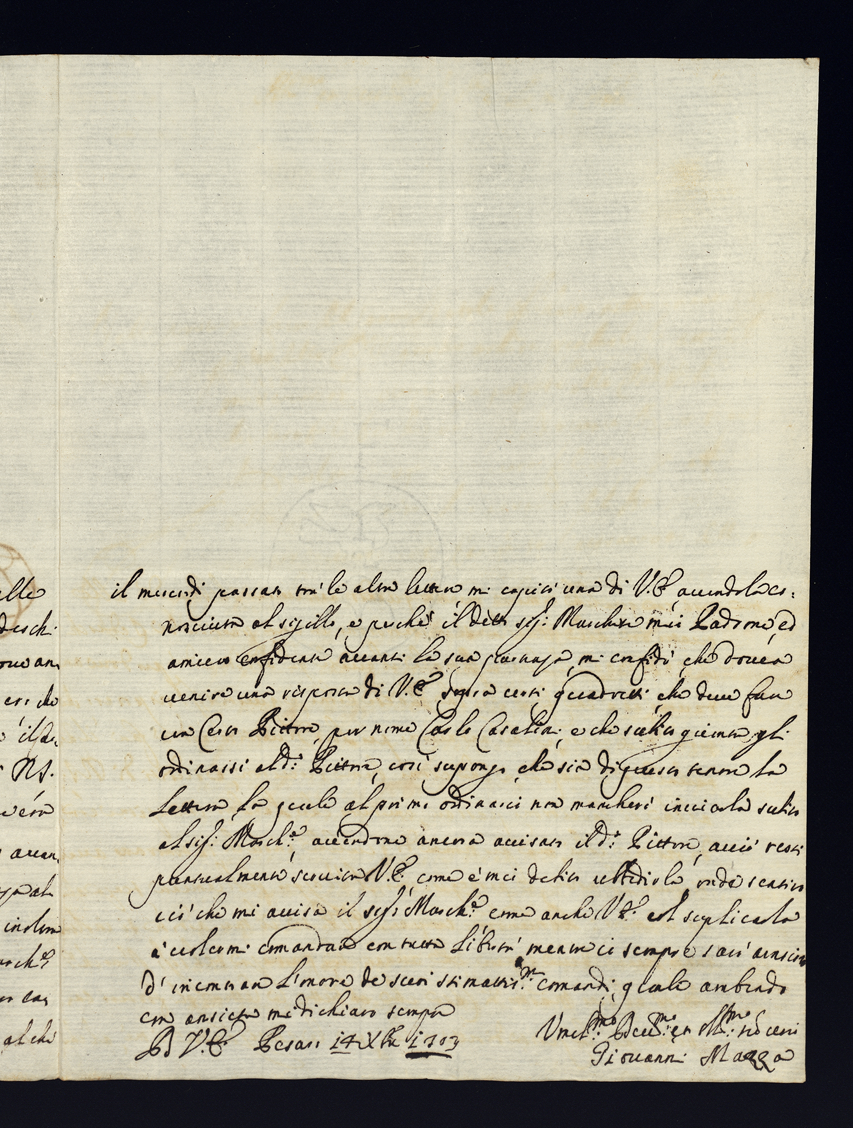 il mercordi passato trà le altre lettere mi capitò una di V.E. avendola co:
nosciuta al sigillo, e perche il detto Sig.r Marchese mio Padrone, ed
amico confidente avanti la sua partenza, mi confidò che doveva
venire una risposta di V.E. sopra certi quadretti, che deve fare
un Certo Pittore, per nome Carlo Casalini, e che subito giunta gli
ordinassi al d.o Pittore, così supongo, che sia di questo tenore la
Lettera, la quale al primo ordinario non mancherò inviarla subito
al Sig.r March.e avendone ancora avisato il d.o Pittore, acciò resti
puntualmente servita V.E. come è mio debito ubbidirla, onde sentirò
ciò che mi avisa il Sig.r March.e come anche V.E. col suplicarla
à volermi comandare con tutta libertà mentre io sempre sarò ansioso
d'incontrar l'onore de suoi stimatiss.mi comandi, quale ambindo
con ansietà mi dichiaro sempre
Di V.E. Pesaro 14 Xbre 1703
Umil.mo Dev.mo ed Obl.mo Servi
Giovanni Mazza
elle
deschi
eri che
R.S.
avan
arch.e
al che